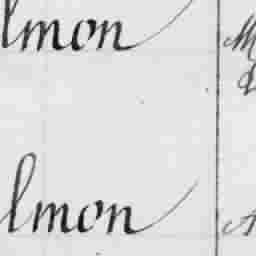 lmon
lmon